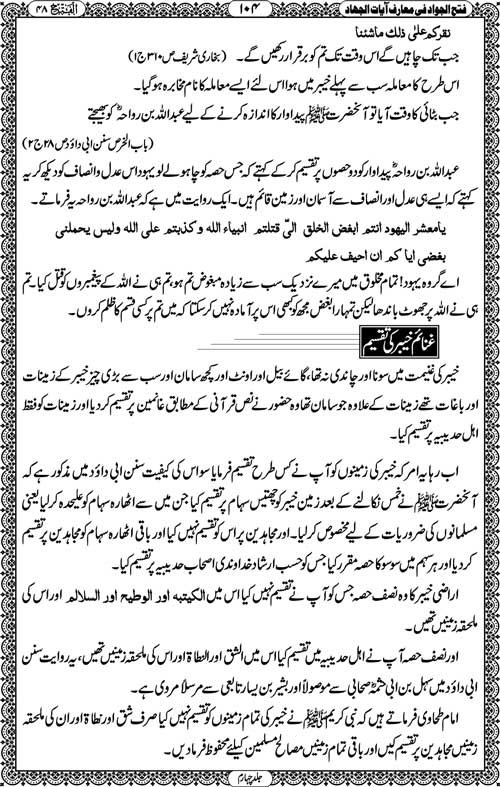 فتح الجواد فی معارف آیات الجہاد ۱۰۴ الفتح ۴۸
نقرکم علیٰ ذلك ماشئنا
جب تک چاہیں گے اس وقت تک تم کو برقرار رکھیں گے۔ (بخاری شریف ص۳۱۰ ج۱)
اس طرح کا معاملہ سب سے پہلے خیبر میں ہوا اس لئے ایسے معاملہ کا نام مخابرہ ہو گیا۔
جب بٹائی کا وقت آیا تو آنحضرت ﷺ پیداوار کا اندازہ کرنے کے لیے عبداللہ بن رواحہؓ کو بھیجتے
(باب الخرص سنن ابی داؤد ص ۲۸ ج ۲)
عبداللہ بن رواحہؓ پیداوار کو دو حصوں پر تقسیم کر کے کہتے کہ جس حصہ کو چاہو لے لو یہود اس عدل وانصاف کو دیکھ کر یہ
کہتے کہ ایسے ہی عدل اور انصاف سے آسمان اور زمین قائم ہیں۔ ایک روایت میں ہے کہ عبداللہ بن رواحہ یہ فرماتے۔
یامعشر الیهود انتم ابغض الخلق الیّ قتلتم انبیاء الله وکذبتم علی الله ولیس یحملنی
بغضی ایا کم ان احیف علیکم
اے گروہ یہود! تمام مخلوق میں میرے نزدیک سب سے زیادہ مبغوض تم ہو، تم ہی نے اللہ کے پیغمبروں کو قتل کیا۔ تم
ہی نے اللہ پر جھوٹ باندھا لیکن تمہارا بغض مجھ کو کبھی اس پر آمادہ نہیں کر سکتا کہ میں تم پر کسی قسم کا ظلم کروں۔
غنائم خیبر کی تقسیم
خیبر کی غنیمت میں سونا اور چاندی نہ تھا، گائے بیل اور اونٹ اور کچھ سامان اور سب سے بڑی چیز خیبر کے زمینات
اور باغات تھے زمینات کے علاوہ جو سامان تھا وہ حضور نے نص قرآنی کے مطابق غانمین پر تقسیم کر دیا اور زمینات کو فقط
اہل حدیبیہ پر تقسیم کیا۔
اب رہا یہ امر کہ خیبر کی زمینوں کو آپ نے کس طرح تقسیم فرمایا سو اس کی کیفیت سنن ابی داؤد میں مذکور ہے کہ
آنحضرت ﷺ نے خُمس نکالنے کے بعد زمین خیبر کو چھتیس سہام پر تقسیم کیا جن میں سے اٹھارہ سہام کو علیحدہ کر لیا یعنی
مسلمانوں کی ضروریات کے لیے مخصوص کر لیا۔ اور مجاہدین پر اس کو تقسیم نہیں کیا اور باقی اٹھارہ سہام کو مجاہدین پر تقسیم
کر دیا اور ہر سہم میں سو سو کا حصہ مقرر کیا جس کو حسب ارشاد خداوندی اصحاب حدیبیہ پر تقسیم کیا۔
اراضی خیبر کا وہ نصف حصہ جس کو آپ نے تقسیم نہیں کیا اس میں الکیتبه اور الوطیح اور السلالم اور اس کی
ملحقہ زمینیں تھیں۔
اور نصف حصہ آپ نے اہل حدیبیہ میں تقسیم کیا اس میں الشق اور النطاۃ اور اس کی ملحقہ زمینیں تھیں، یہ روایت سنن
ابی داؤد میں سہل بن ابی حثمہؓ صحابی سے موصولاً اور بشیر بن یسار تابعی سے مرسلاً مروی ہے۔
امام طحاوی فرماتے ہیں کہ نبی کریم ﷺ نے خیبر کی تمام زمینوں کو تقسیم نہیں کیا صرف شق اور نطاۃ اور ان کی ملحقہ
زمینیں مجاہدین پر تقسیم کیں اور باقی تمام زمینیں مصالح مسلمین کیلئے محفوظ فرمادیں۔
جلد چہارم